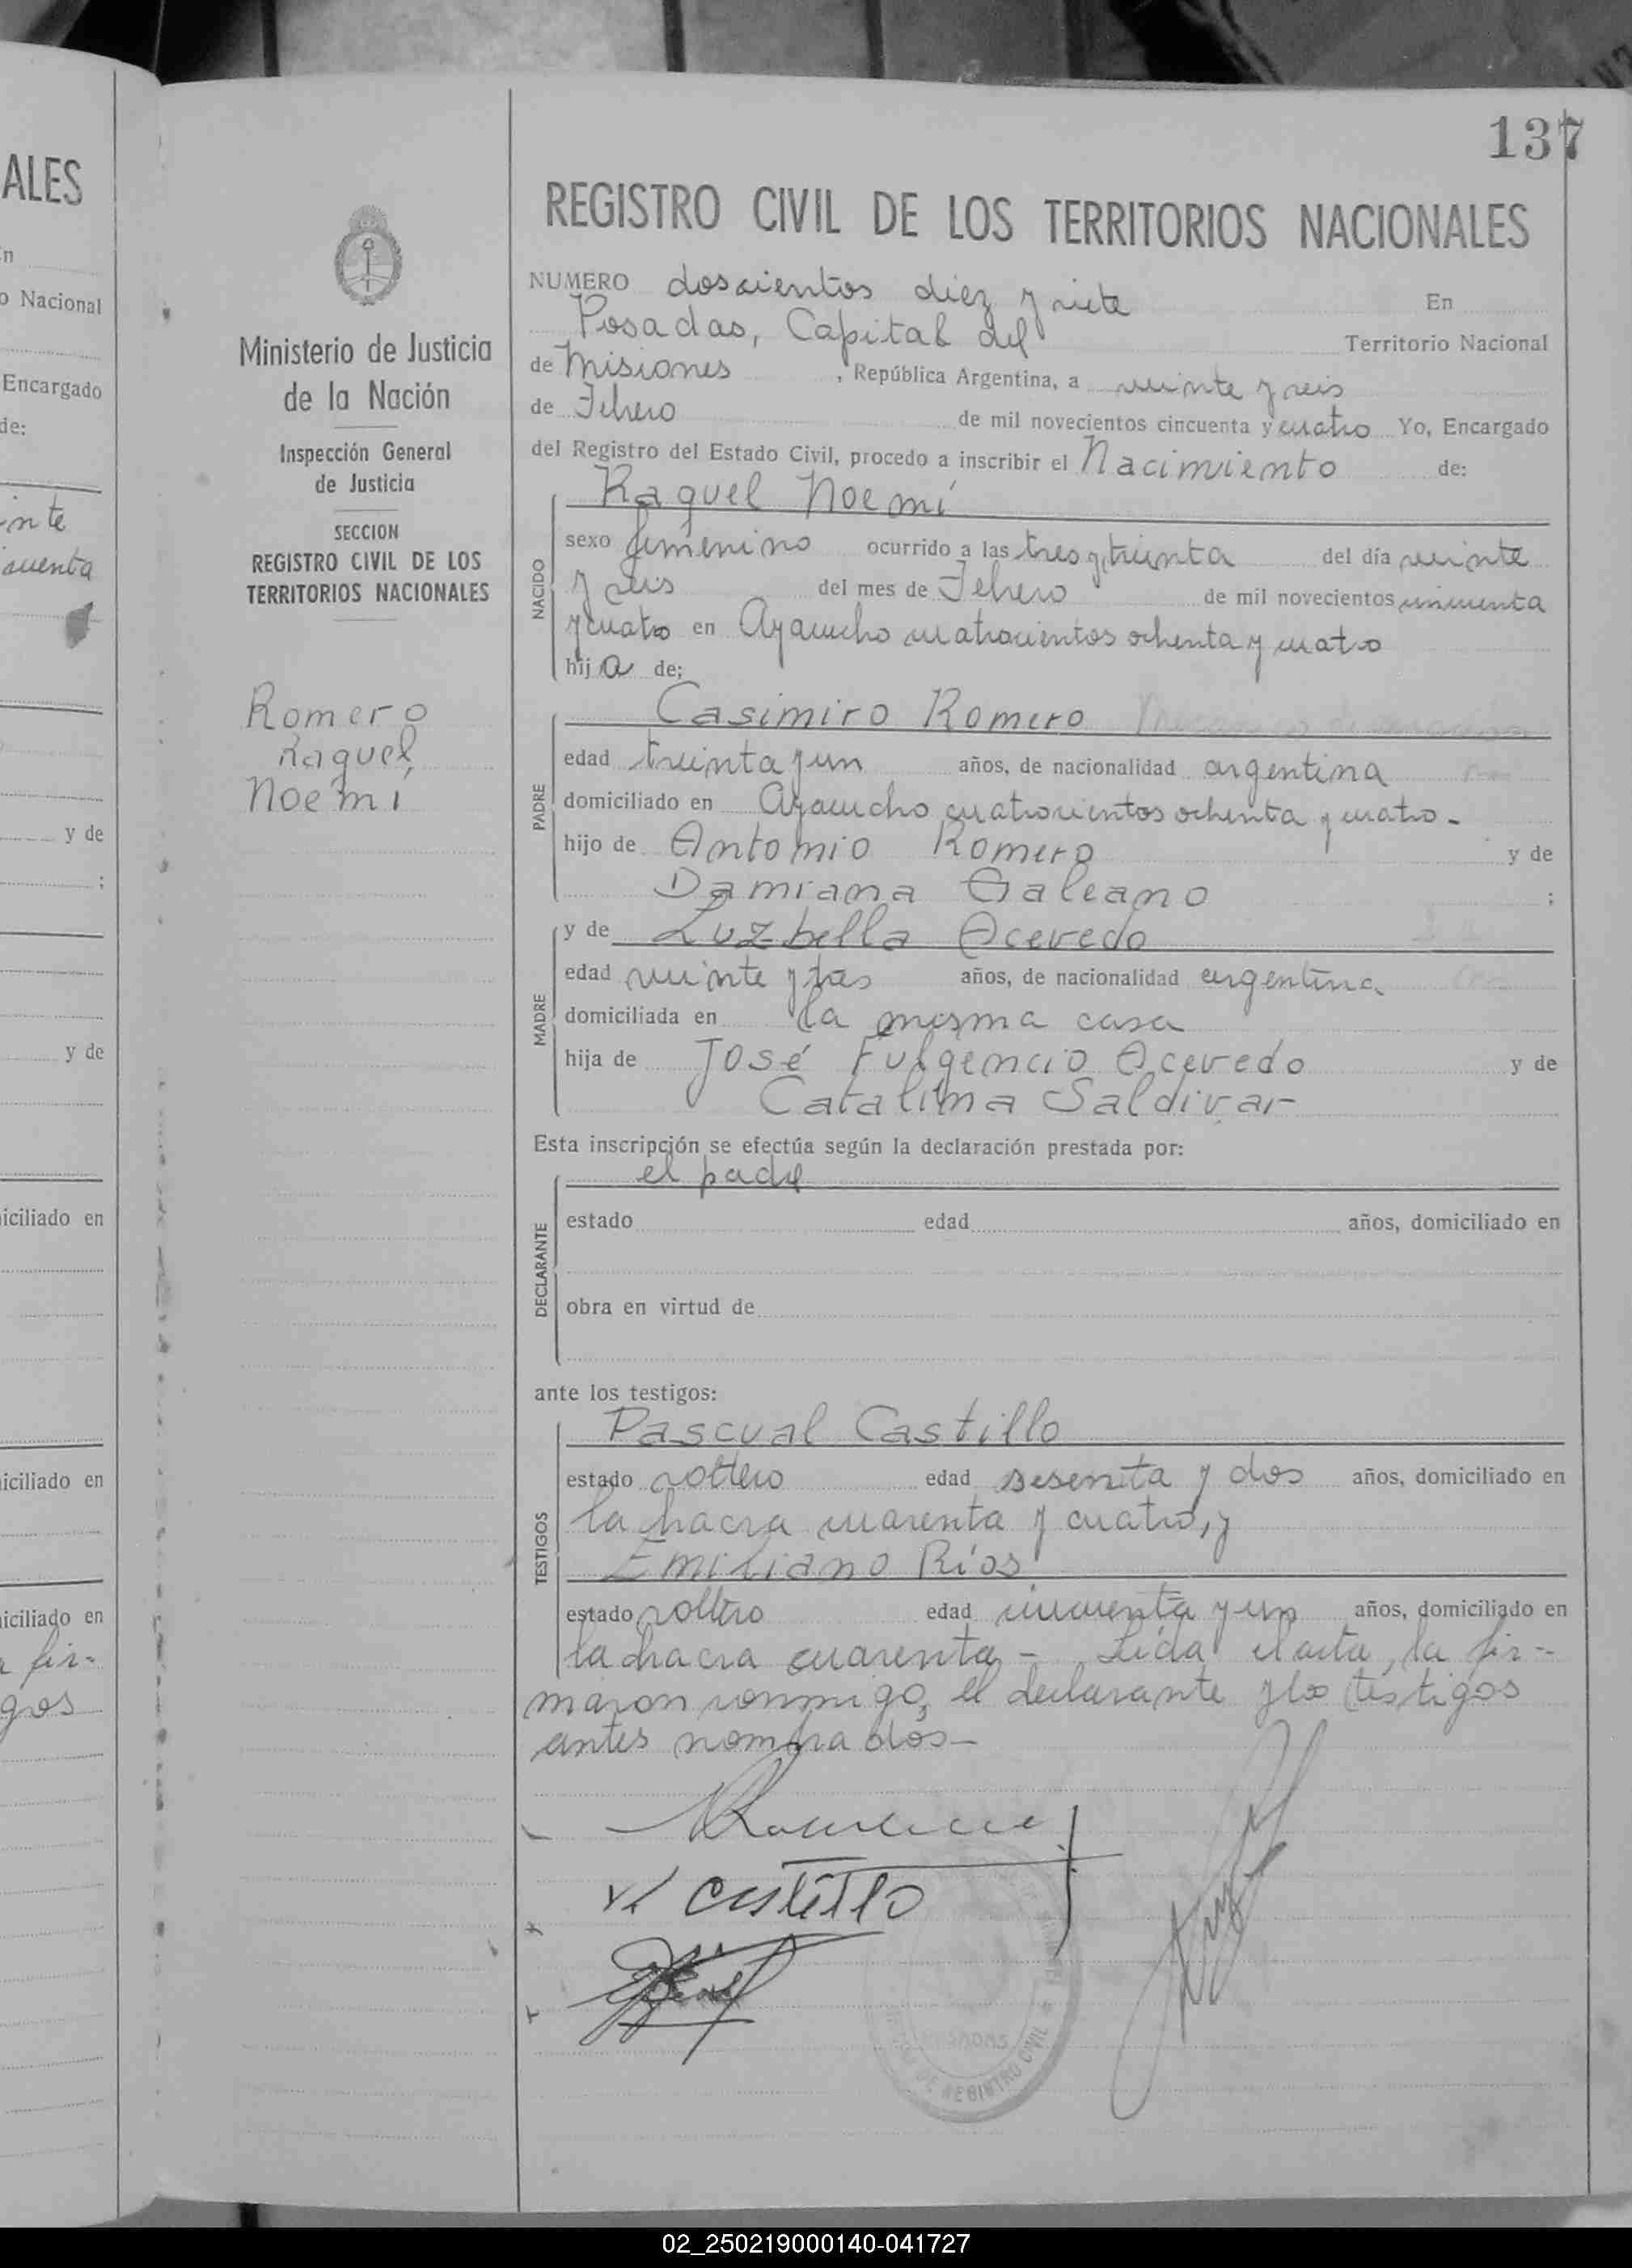 ALES
n
o Nacional
Encargado
de:
inte
cuenta
y de
;
y de
iciliado en
iciliado en
iciliado en
a fir-
gos
Ministerio de Justicia
de la Nación
Inspección General
de Justicia
SECCION
REGISTRO CIVIL DE LOS
TERRITORIOS NACIONALES
Romero
Raquel
Noemí
137
REGISTRO CIVIL DE LOS TERRITORIOS NACIONALES
NUMERO doscientos diez y siete En
Posadas, Capital del Territorio Nacional
de Misiones, República Argentina, a veinte y seis
de Febrero de mil novecientos cincuenta y cuatro Yo, Encargado
del Registro del Estado Civil, procedo a inscribir el Nacimiento de:
Raquel Noemí
NACIDO
sexo femenino ocurrido a las tres y treinta del día veinte
y seis del mes de Febrero de mil novecientos cincuenta
y cuatro en Ayacucho cuatrocientos ochenta y cuatro
hija de:
Casimiro Romero
PADRE
edad treinta y un años, de nacionalidad argentina
domiciliado en Ayacucho cuatrocientos ochenta y cuatro -
hijo de Antonio Romero y de
Damiana Galeano ;
y de Luzbella Acevedo
MADRE
edad veinte y tres años, de nacionalidad argentina
domiciliada en la misma casa
hija de José Fulgencio Acevedo y de
Catalina Saldivar
Esta inscripción se efectúa según la declaración prestada por:
el padre
DECLARANTE
estado edad años, domiciliado en
obra en virtud de
ante los testigos:
Pascual Castillo
TESTIGOS
estado soltero edad sesenta y dos años, domiciliado en
la chacra cuarenta y cuatro, y
Emiliano Ríos
estado soltero edad cincuenta y un años, domiciliado en
la chacra cuarenta - Leída el acta, la fir-
maron conmigo, el declarante y los testigos
antes nombrados -
castillo
DE REGISTRO CIVIL
02_250219000140-041727